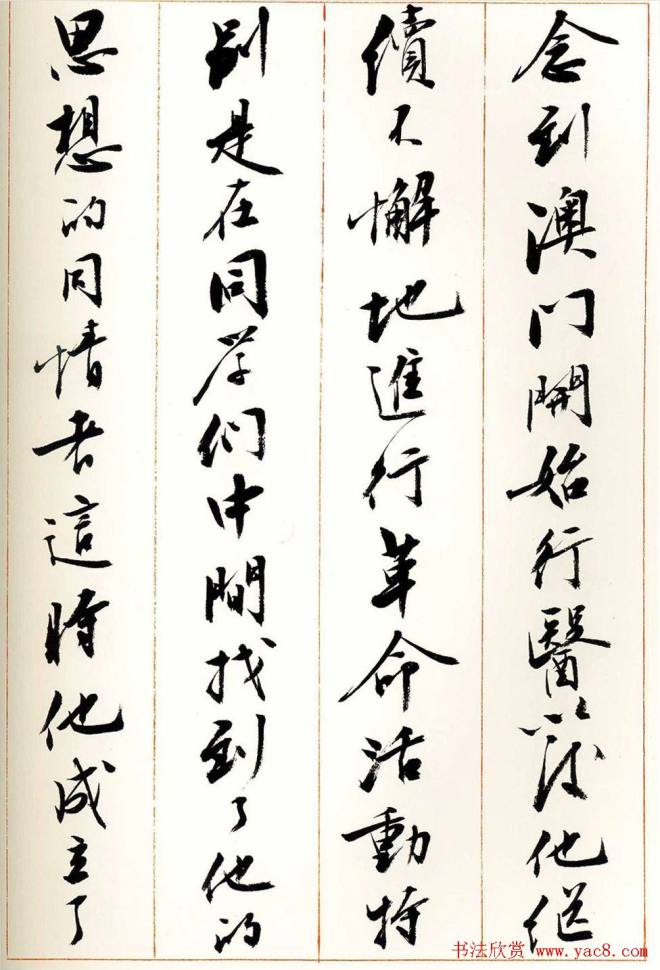 念到澳门開始行醫以後他継
續不懈地進行革命活動特
别是在同学们中間找到了他的
思想的同情者這時他成立了
书法欣赏 www.yac8.com